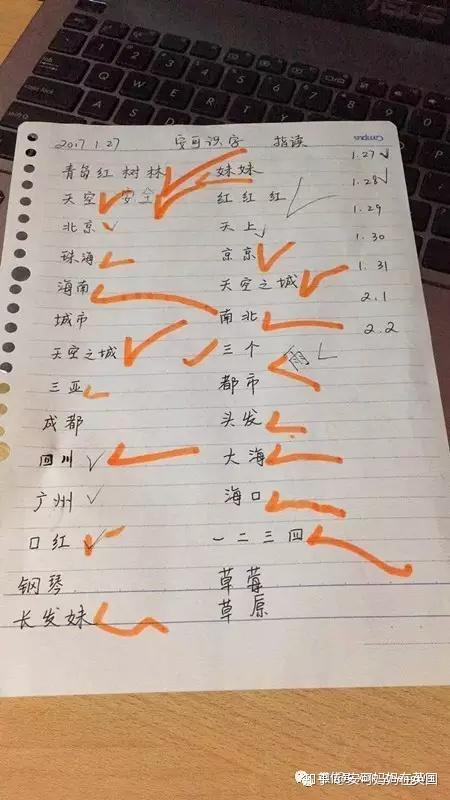 ASUS
Campus
2017.1.27 安可识字 指读
1.27
1.28
1.29
1.30
1.31
2.1
2.2
青岛红树林 妹妹
天空 安全 红红红
北京 天上
珠海 京京
海南 天空之城
城市 南北
天空之城 三个 雨
三亚 都市
成都 头发
四川 大海
广州 海口
口红 一二三四
钢琴 草莓
长发妹 草原